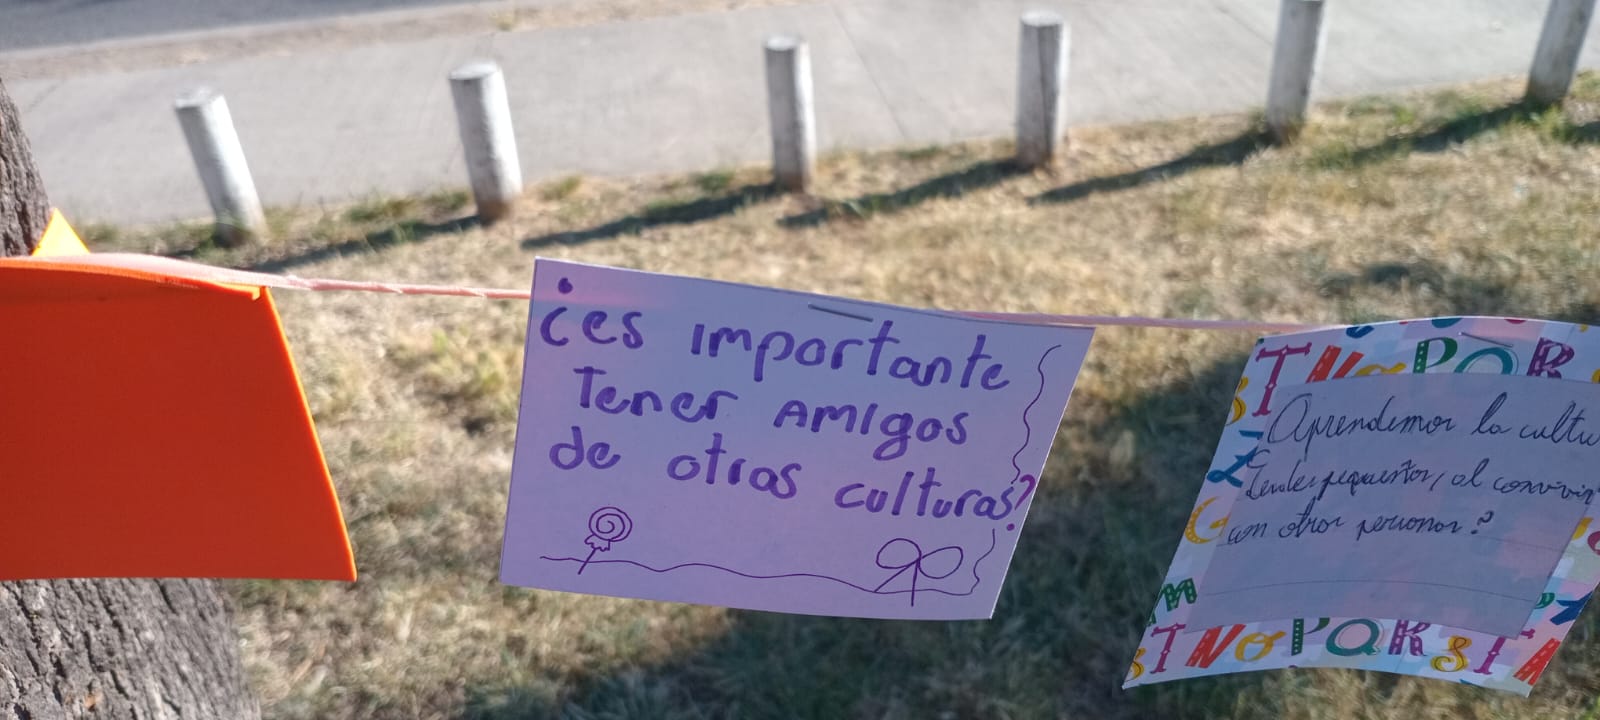 ¿es importante
Tener Amigos
de otras culturas?
Aprendemos la cultu
desde pequeños, al convivir
con otras personas?
TNOPQR
STNOPQRSTA